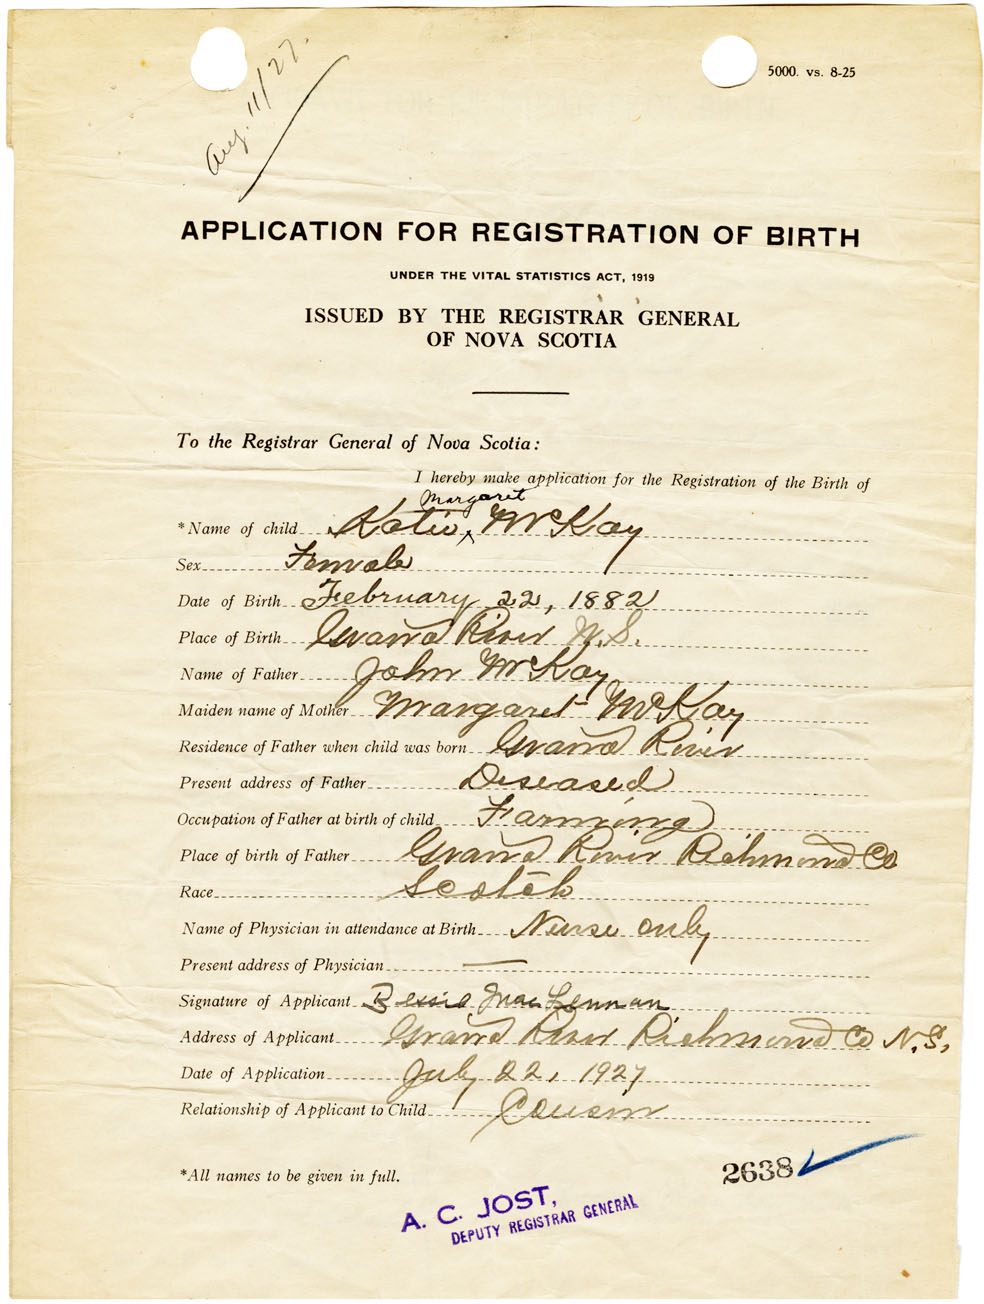 5000. vs. 8-25
Aug. 11/27.
APPLICATION FOR REGISTRATION OF BIRTH
UNDER THE VITAL STATISTICS ACT, 1919
ISSUED BY THE REGISTRAR GENERAL
OF NOVA SCOTIA
To the Registrar General of Nova Scotia:
I hereby make application for the Registration of the Birth of
Margaret
*Name of child Katie ^ McKay
Sex Female
Date of Birth February 22, 1882
Place of Birth Grand River N.S.
Name of Father John McKay
Maiden name of Mother Margaret McKay
Residence of Father when child was born Grand River
Present address of Father Deseased
Occupation of Father at birth of child Farming
Place of birth of Father Grand River Richmond Co
Race Scotch
Name of Physician in attendance at Birth Nurse only
Present address of Physician —
Signature of Applicant Bessie MacLennan
Address of Applicant Grand River Richmond Co N.S.
Date of Application July 22, 1927
Relationship of Applicant to Child Cousin
*All names to be given in full.
2638
A. C. JOST,
DEPUTY REGISTRAR GENERAL